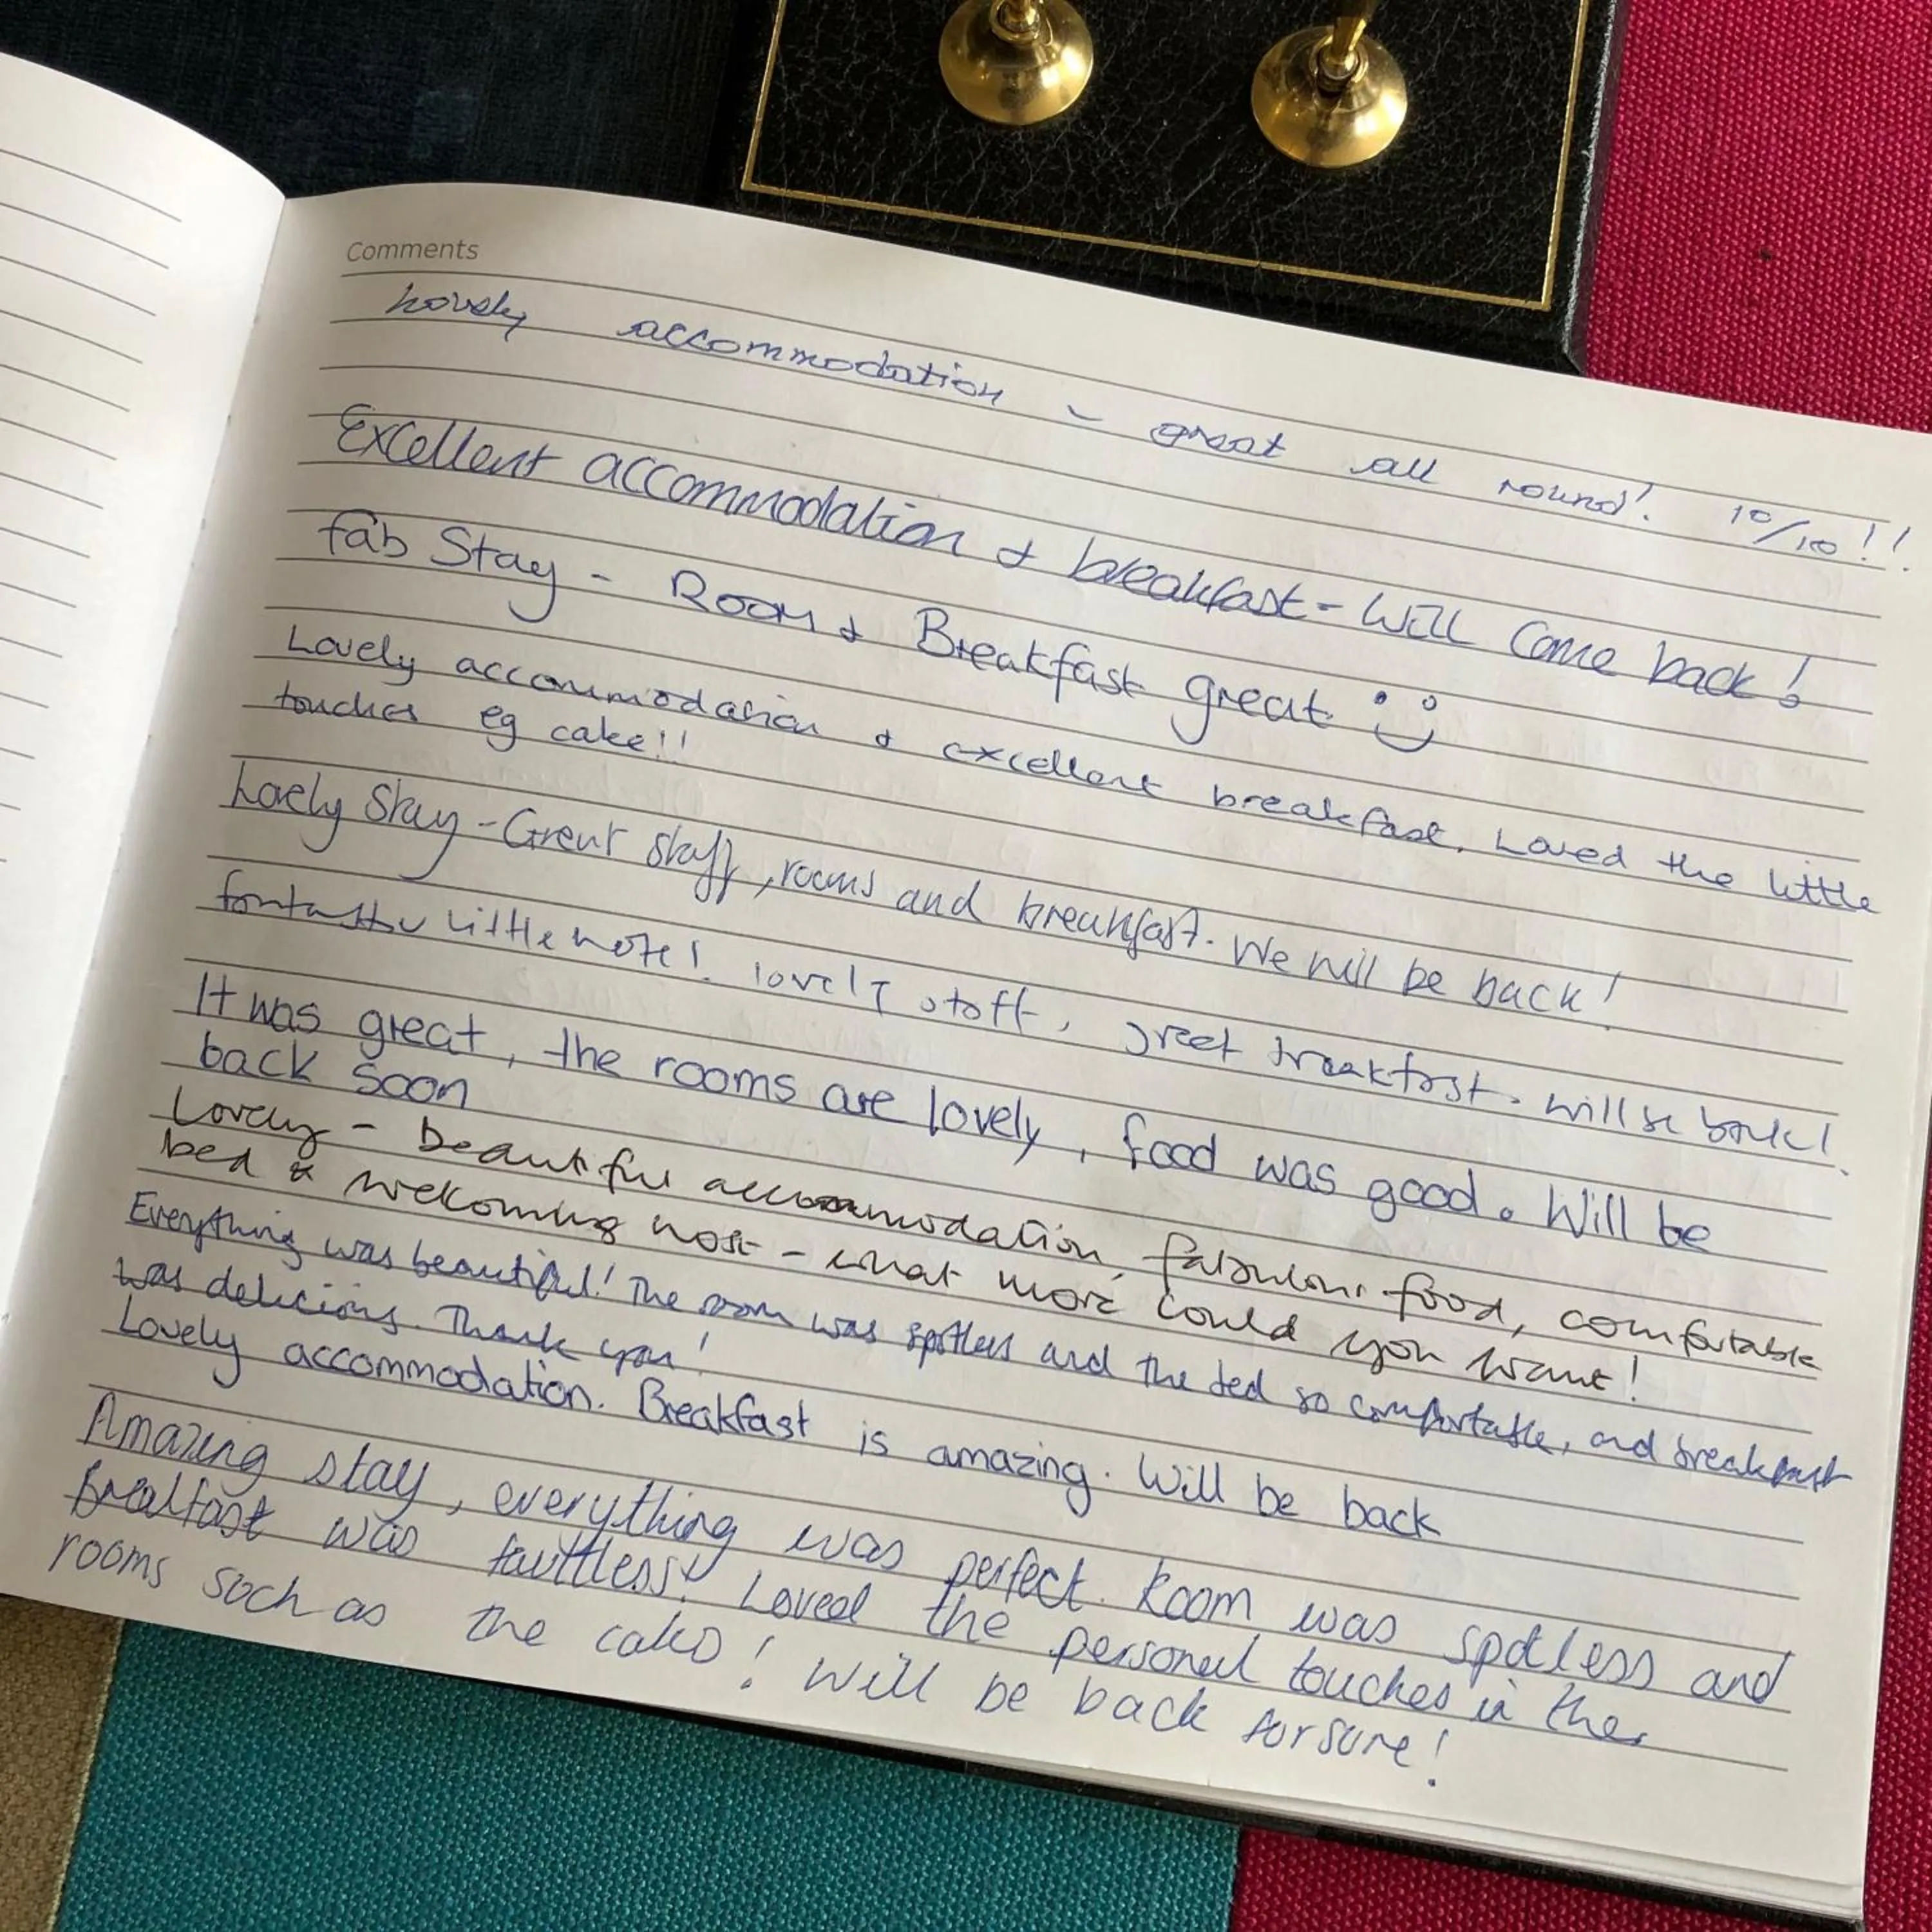 Comments
Lovely accommodation - great all round! 10/10!!
Excellent accommodation & breakfast - Will Come back!
fab Stay - Room & Breakfast great :)
Lovely accommodation & excellent breakfast. Loved the little
touches eg cake!!
Lovely Stay - Great staff, rooms and breakfast. We will be back!
fantastic little hotel. lovely staff, great breakfast. will be back!
It was great, the rooms are lovely, food was good. Will be
back soon
Lovely - beautiful accommodation, fabulous food, comfortable
bed & welcoming host - what more could you want!
Everything was beautiful! The room was spotless and the bed so comfortable, and breakfast
was delicious. Thank you!
Lovely accommodation. Breakfast is amazing. Will be back
Amazing stay, everything was perfect. Room was spotless and
Breakfast was faultless! Loved the personal touches in the
rooms such as the cakes! Will be back for sure!